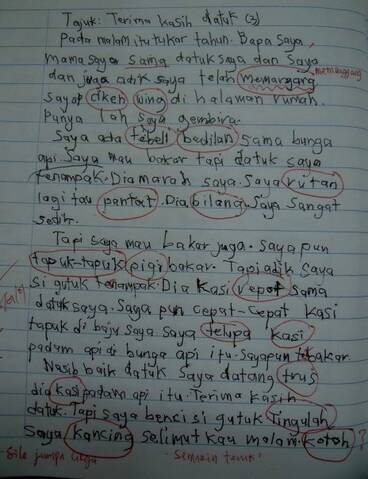 Tajuk: Terima kasih datuk (3)
Pada malam itu tukar tahun. Bapa saya,
mama saya sama datuk saya dan saya
dan juga adik saya telah memargang
memanggang
sayap cikeh wing di halaman rumah.
Punya lah saya gembira.
Saya ada tebeli bedilan sama bunga
api. Saya mau bakar tapi datuk saya
tenampak. Dia marah saya. Saya rutan
lagi tau pantat. Dia bilang. Saya sangat
sedih.
Tapi saya mau bakar juga. Saya pun
tapuk-tapuk pigi bakar. Tapi adik saya
si gutuk tenampak. Dia kasi repot sama
datuk saya. Saya pun cepat-cepat kasi
tapuk di baju saya saya telupa kasi
padam api di bunga api itu. Saya pun tebakar.
Nasib baik datuk saya datang trus
dia kasi padam api itu. Terima kasih
datuk. Tapi saya benci si gutuk tingulah
saya kancing selimut kau malam kotoh ?
Sila jumpa cikgu
Semakin teruk!